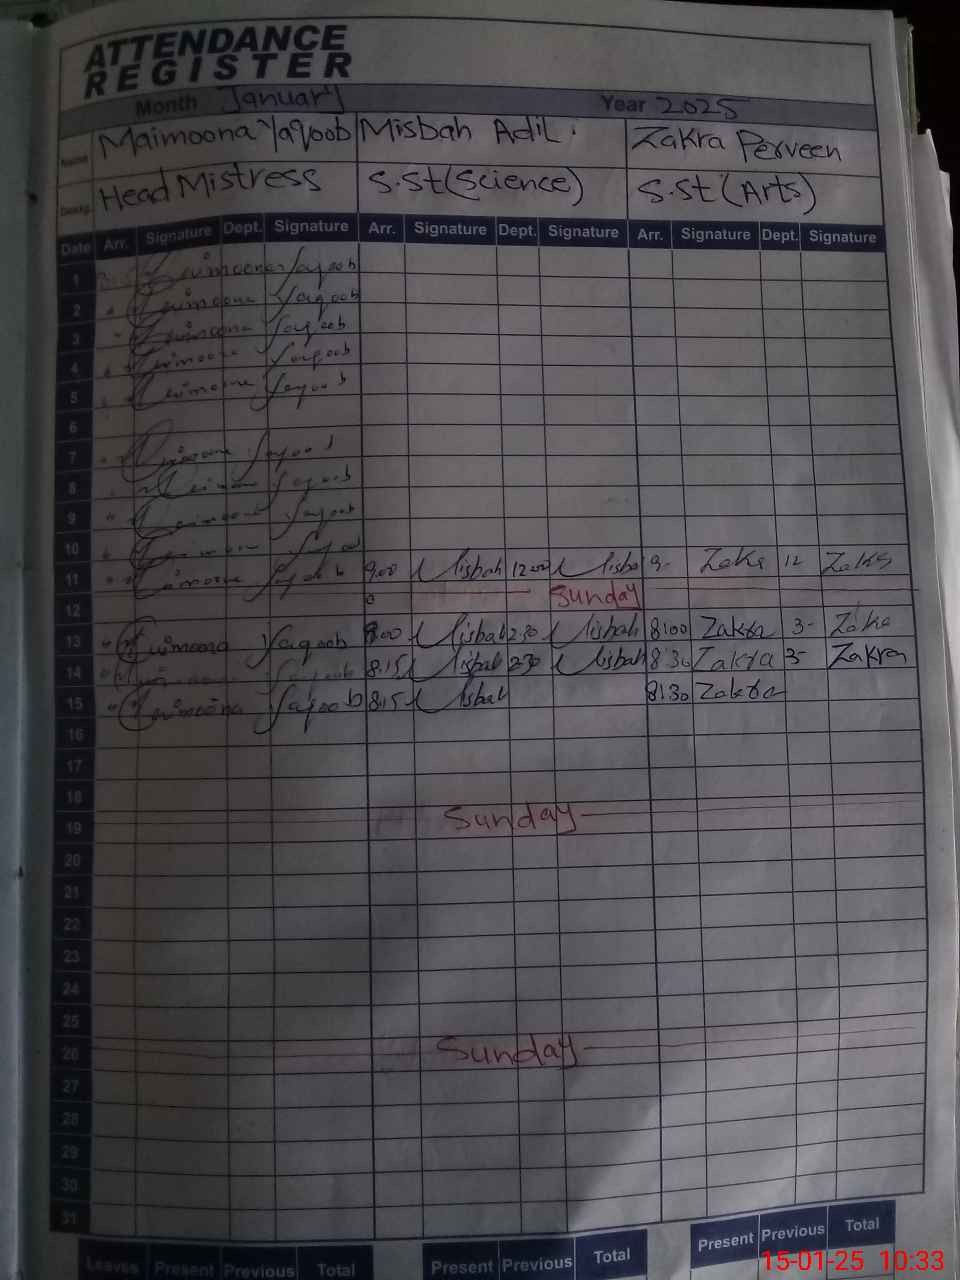 ATTENDANCE
REGISTER
Month January Year 2025
Name Maimoona Yaqoob Misbah Adil Zakra Perveen
Desig. Head Mistress S.St (Science) S.St (Arts)
Date Arr. Signature Dept. Signature Arr. Signature Dept. Signature Arr. Signature Dept. Signature
1 Maimoona Yaqoob
2 Maimoona Yaqoob
3 Maimoona Yaqoob
4 Maimoona Yaqoob
5 Maimoona Yaqoob
6
7 Maimoona Yaqoob
8 Maimoona Yaqoob
9 Maimoona Yaqoob
10 Maimoona Yaqoob
11 " Maimoona Yaqoob 9.00 Misbah 12.00 Misbah 9- Zakra 12 Zakra
12 Sunday
13 " Maimoona Yaqoob 8.00 Misbah 2.30 Misbah 8:00 Zakra 3- Zakra
14 " Maimoona Yaqoob 8.15 Misbah 2.30 Misbah 8:30 Zakra 3- Zakra
15 " Maimoona Yaqoob 8.15 Misbah 8:30 Zakra
16
17
18
19 Sunday
20
21
22
23
24
25
26 Sunday
27
28
29
30
31
Leaves Present Previous Total Present Previous Total Present Previous Total
15-01-25 10:33